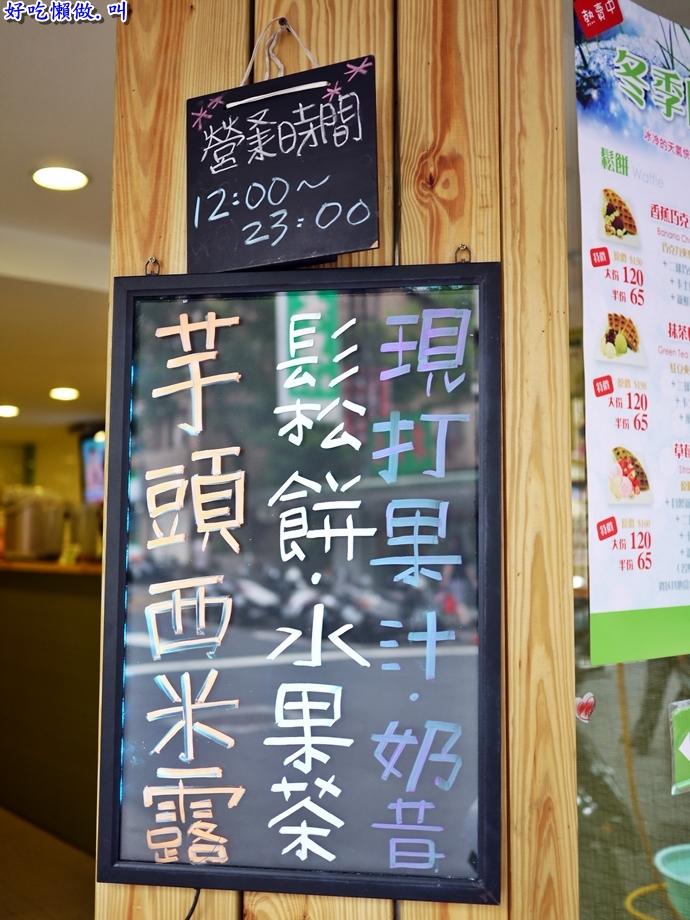 好吃懶做.叫
營業時間
12:00~
23:00
現打果汁.奶昔
鬆餅.水果茶
芋頭西米露
熱賣中
冬季
冰冷的天氣快
鬆餅 Waffle
香蕉巧克
Banana Ch
特價 原價 $150
大份 120
半份 65
抹茶
Green Tea
特價 原價 $150
大份 120
半份 65
草莓
特價 原價 $160
大份 120
半份 65